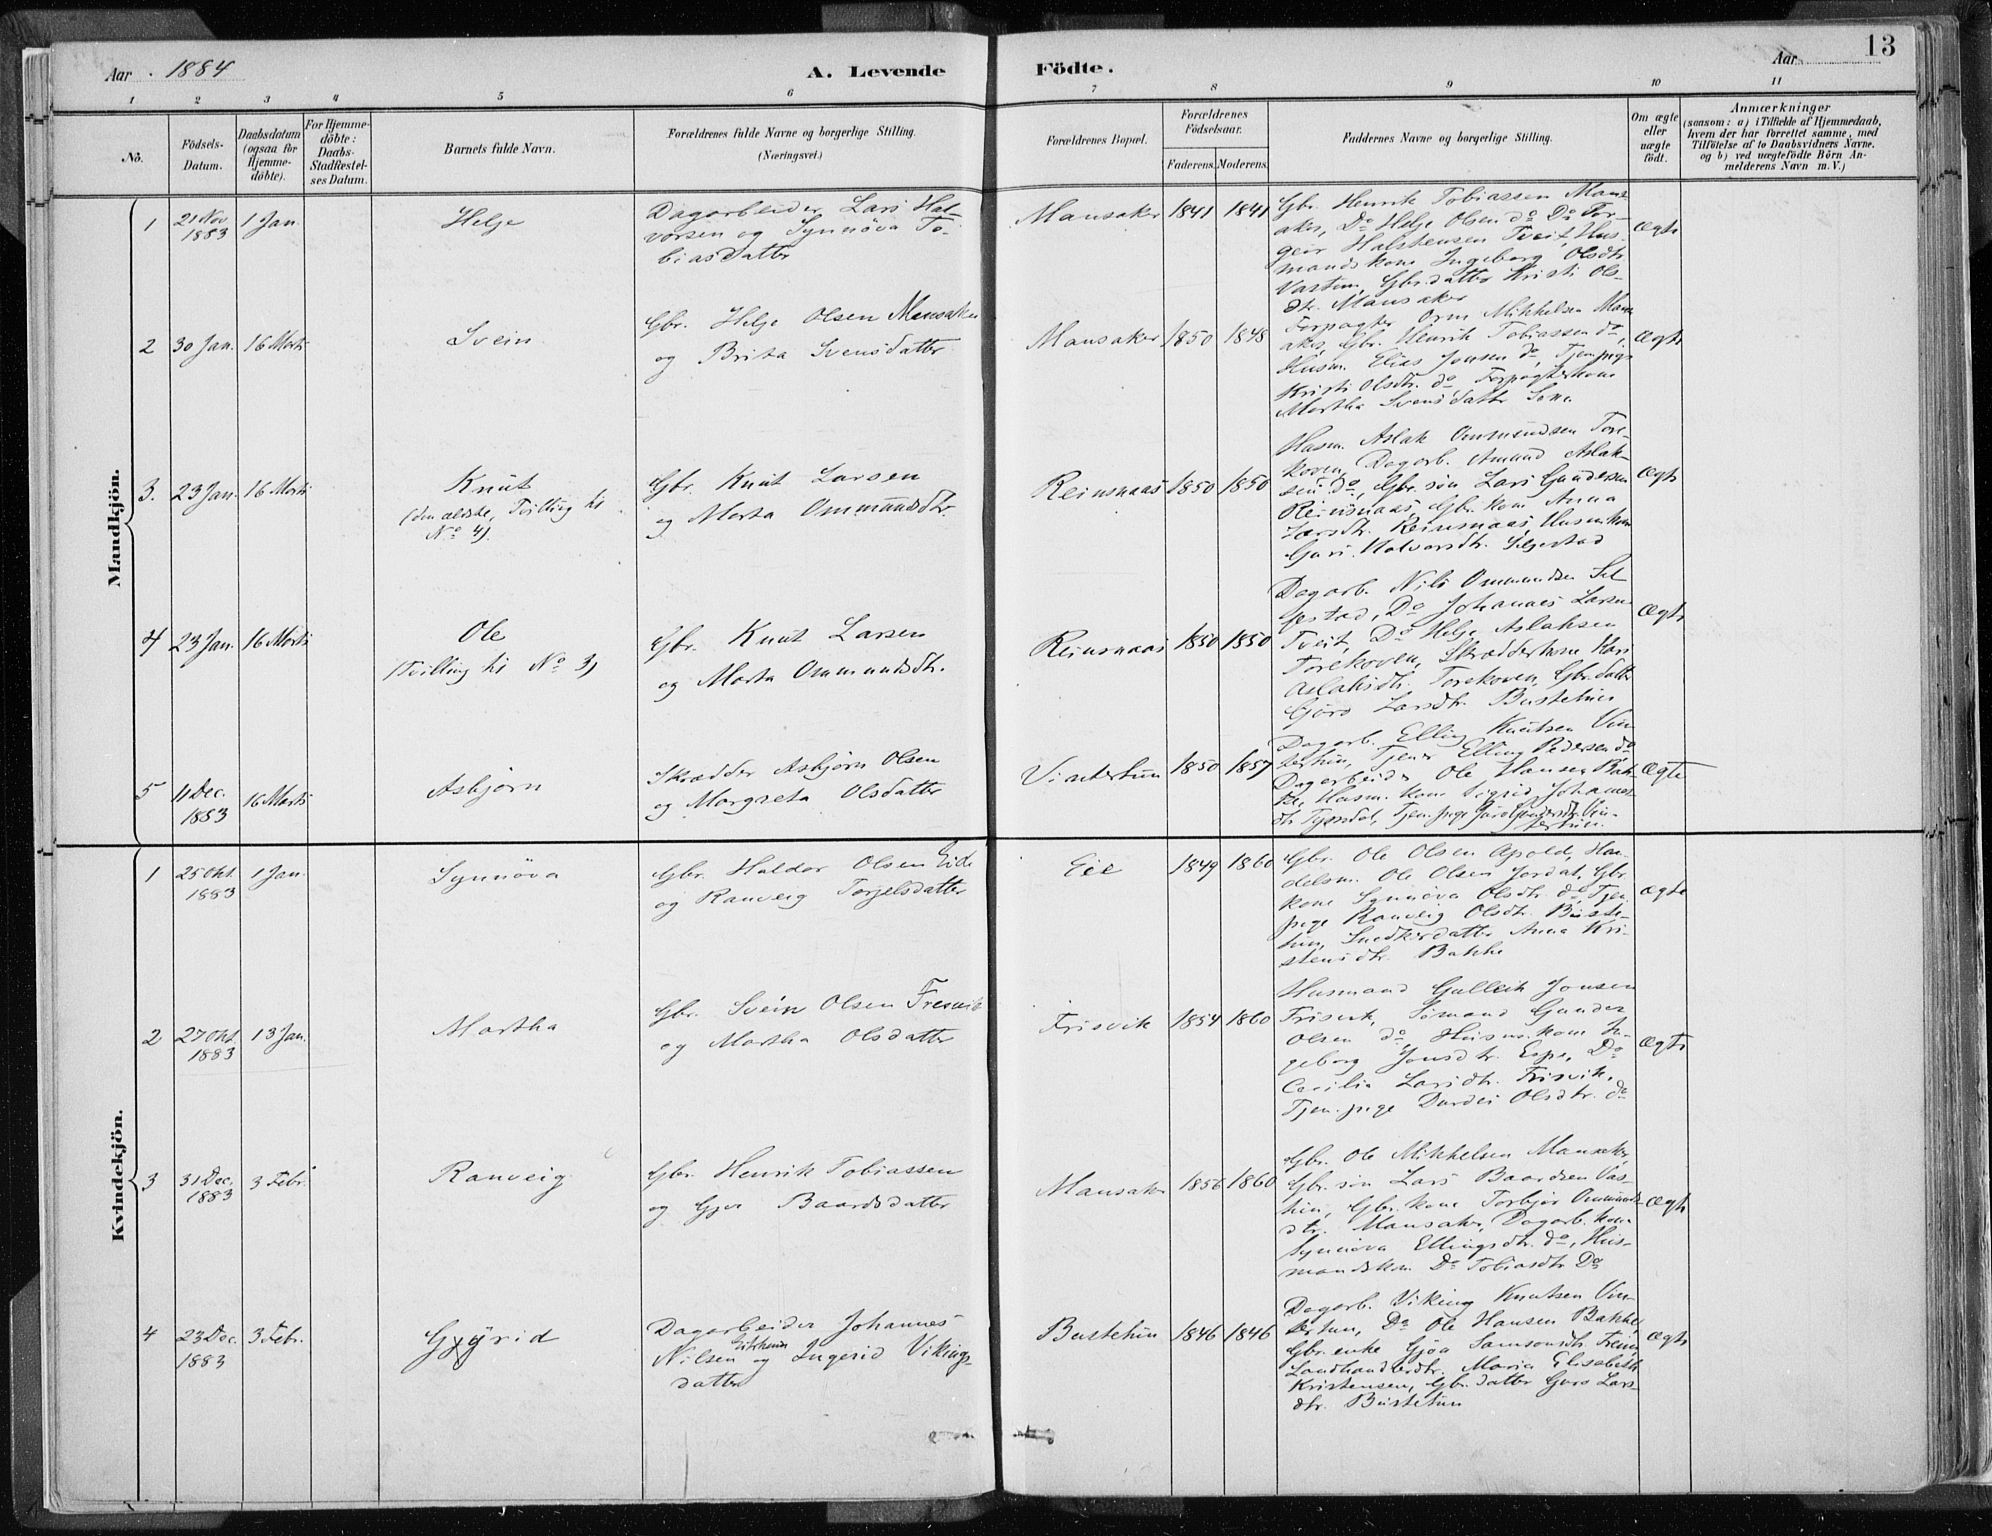 13
Aar . 1884
A. Levende
Födte.
Aar
1 2 3 4 5 6 7 8 9 10 11
No.
Födsels-
Datum.
Daabsdatum
(ogsaa for
Hjemme-
döbte).
For Hjemme-
döbte:
Daabs-
Stadfæstel-
ses Datum.
Barnets fulde Navn.
Forældrenes fulde Navne og borgerlige Stilling.
(Næringsvei.)
Forældrenes Bopæl.
Forældrenes
Födselsaar.
Faderens. Moderens.
Faddernes Navne og borgerlige Stilling.
Om ægte
eller
uægte
födt.
Anmærkninger
(saasom: a) i Tilfælde af Hjemmedaab,
hvem der har forrettet samme, med
Tilföielse af to Daabsvidners Navne,
og b) ved uægtefödte Börn An-
melderens Navn m. V.)
Mandkjön.
1
21 Nov
1883
1 Jan.
Helje
Dagarbeider Lars Hal-
vorsen og Synnöva To-
biasdatter
Mansaker
1841 1841
Gbr. Henrik Tobiassen Mans-
aker, Do Helje Olsen do Do Tor-
geir Halstensen Tveit, Hus-
mandskone Ingeborg Olsdtr.
Vastun, Gbr.datter Kristi Ols-
dtr. Mansaker
Ægte
2
30 Jan.
16 Marts
Svein
Gbr. Helje Olsen Mansaker
og Brita Svensdatter
Mansaker
1850 1848
Forpagter Orm Mikkelsen Mans-
aker, Gbr. Henrik Tobiassen do,
Husm. Elias Jonsen do, Tjen.pige
Kristi Olsdtr. do Forpagterkone
Martha Svensdatter
Ægte
3.
23 Jan.
16 Marts
Knut
(den ældste, Tvilling til
No 4).
Gbr. Knut Larsen
og Marta Ommundsdtr.
Reinsnaas
1850 1850
Husm. Aslak Ommundsen Tore-
koven, Dagarb. Amund Aslak-
sen do, Gbr. sön Lars Gundersen
Reinsnaas, Gbr. kone Anna
Larsdtr. Reinsnaas, Husm.kone
Guri Halvorsdtr. Seljestad
Ægte
4
23 Jan.
16 Marts
Ole
(Tvilling til No 3)
Gbr. Knut Larsen
og Marta Ommundsdtr.
Reinsnaas
1850 1850
Dagarb. Nils Ommundsen Sel-
jestad, Do Johannes Larsen
Tveit, Do Helje Aslaksen
Torekoven, Skrædderkone Kari
Aslaksdtr. Torekoven, Gbr.datter
Gjöro Larsdtr. Bustetun
Ægte
5
11 Dec.
1883
16 Marts
Asbjörn
Skrædder Asbjörn Olsen
og Margreta Olsdatter
Vintertun
1850 1857
Dagarb. Elling Knutsen Vin-
tertun, Tjener Elling Pedersen do
Dagarbeider Ole Hansen Bak-
ke, Husm. kone Sigrid Johannes-
dtr Tyssdal, Tjen.pige
Vin-
tertun.
Ægte
Kvindekjön.
1
25 Okt.
1883
1 Jan.
Synnöva
Gbr. Haldor Olsen Eide
og Ranveig Torjelsdatter
Eie
1849 1860
Gbr. Ole Olsen Apold, Han-
delsm. Ole Olsen Jordal, Gbr.
kone Synnöva Olsdtr. do Tjen.
pige Ranveig Olsdtr. Buste-
tun, Snedkerdatter Anna Kri-
stensdtr. Bakke
Ægte
2
27 Okt.
1883
13 Jan.
Martha
Gbr. Svein Olsen Fresvik
og Martha Olsdatter
Frisvik
1854 1860
Husmand Gulleik Jonsen
Frisvik, Sömand Gunder
Olsen do, Husm.kone In-
geborg Jonsdtr. Espe, Do
Cecilia Larsdtr. Frisvik,
Tjen. pige Durdei Olsdtr. do
Ægte
3
31 Dec.
1883
3 Febr.
Ranveig
Gbr. Henrik Tobiassen
og Gjöa Baardsdatter
Mansaker
1856 1860
Gbr. Ole Mikkelsen Mansaker,
Gbr. sön Lars Baardsen Vas-
tun, Gbr. kone Torbjör Ommunds-
dtr. Mansaker, Dagarb. kone
Synnöva Ellingsdtr. do, Hus-
mandskone Do Tobiasdtr Do
Ægte
4
23 Dec.
1883
3 Febr.
Gyrid
Dagarbeider Johannes
Nilsen og Ingerid Vikings-
datter
Bustetun
1846 1846
Dagarb. Viking Knutsen Vin-
tertun, Do Ole Hansen Bakke,
Gbr.enke Gjöa Samsonsdtr.
Landhandlerdtr. Maria Elisabeth
Kristensen, Gbr. datter Guro Lars-
dtr. Bustetun
Ægte